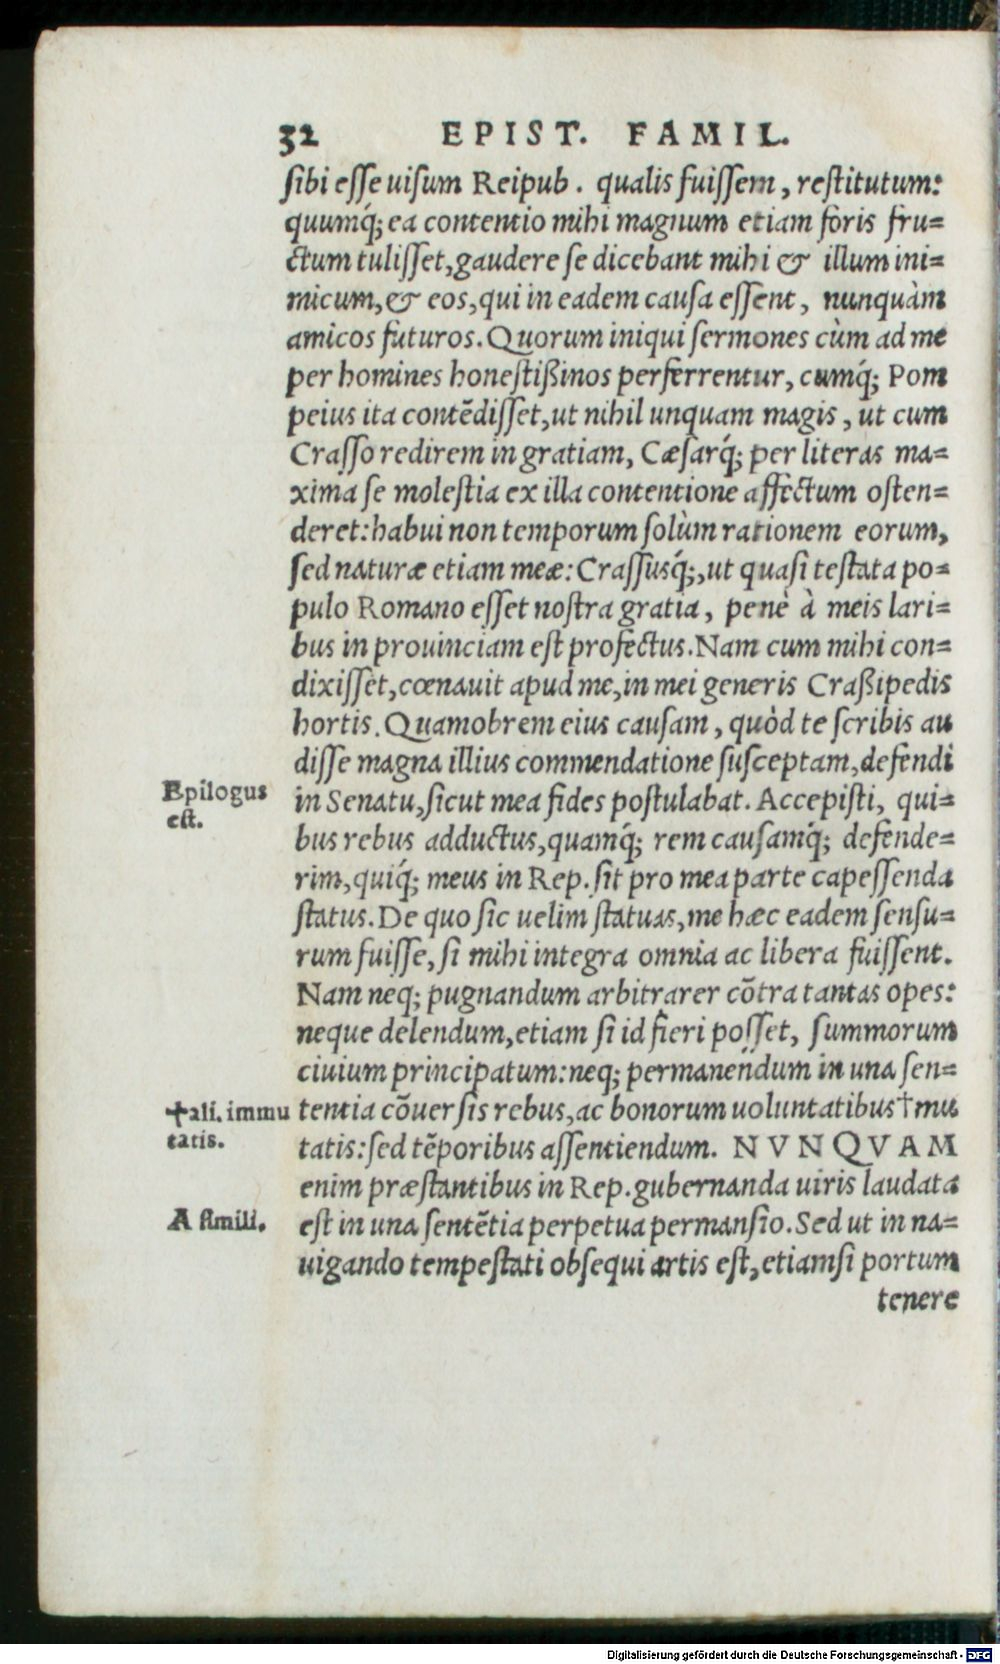 32 EPIST. FAMIL.
sibi esse uisum Reipub. qualis fuissem, restitutum:
quumq́; ea contentio mihi magnum etiam foris fru=
ctum tulisset, gaudere se dicebant mihi & illum ini=
micum, & eos, qui in eadem causa essent, nunquàm
amicos futuros. Quorum iniqui sermones cùm ad me
per homines honestißinos perferrentur, cumq́; Pom
peius ita contẽdisset, ut nihil unquam magis, ut cum
Crasso redirem in gratiam, Cæsarq́; per literas ma=
xima se molestia ex illa contentione affectum osten=
deret: habui non temporum solùm rationem eorum,
sed naturæ etiam meæ: Crassusq́;, ut quasi testata po=
pulo Romano esset nostra gratia, penè à meis lari=
bus in prouinciam est profectus. Nam cum mihi con=
dixisset, cœnauit apud me, in mei generis Craßipedis
hortis. Quamobrem eius causam, quòd te scribis au
disse magna illius commendatione susceptam, defendi
Epilogus est.
in Senatu, sicut mea fides postulabat. Accepisti, qui=
bus rebus adductus, quamq́; rem causamq́; defende=
rim, quiq́; meus in Rep. sit pro mea parte capessenda
status. De quo sic uelim statuas, me hæc eadem sensu=
rum fuisse, si mihi integra omnia ac libera fuissent.
Nam neq; pugnandum arbitrarer cõtra tantas opes:
neque delendum, etiam si id fieri posset, summorum
ciuium principatum: neq; permanendum in una sen=
†ali. immu
tatis.
tentia cõuersis rebus, ac bonorum uoluntatibus †mu
tatis: sed tẽporibus assentiendum. NVNQVAM
enim præstantibus in Rep. gubernanda uiris laudata
A simili.
est in una sentẽtia perpetua permansio. Sed ut in na=
uigando tempestati obsequi artis est, etiamsi portum
tenere
Digitalisierung gefördert durch die Deutsche Forschungsgemeinschaft - DFG